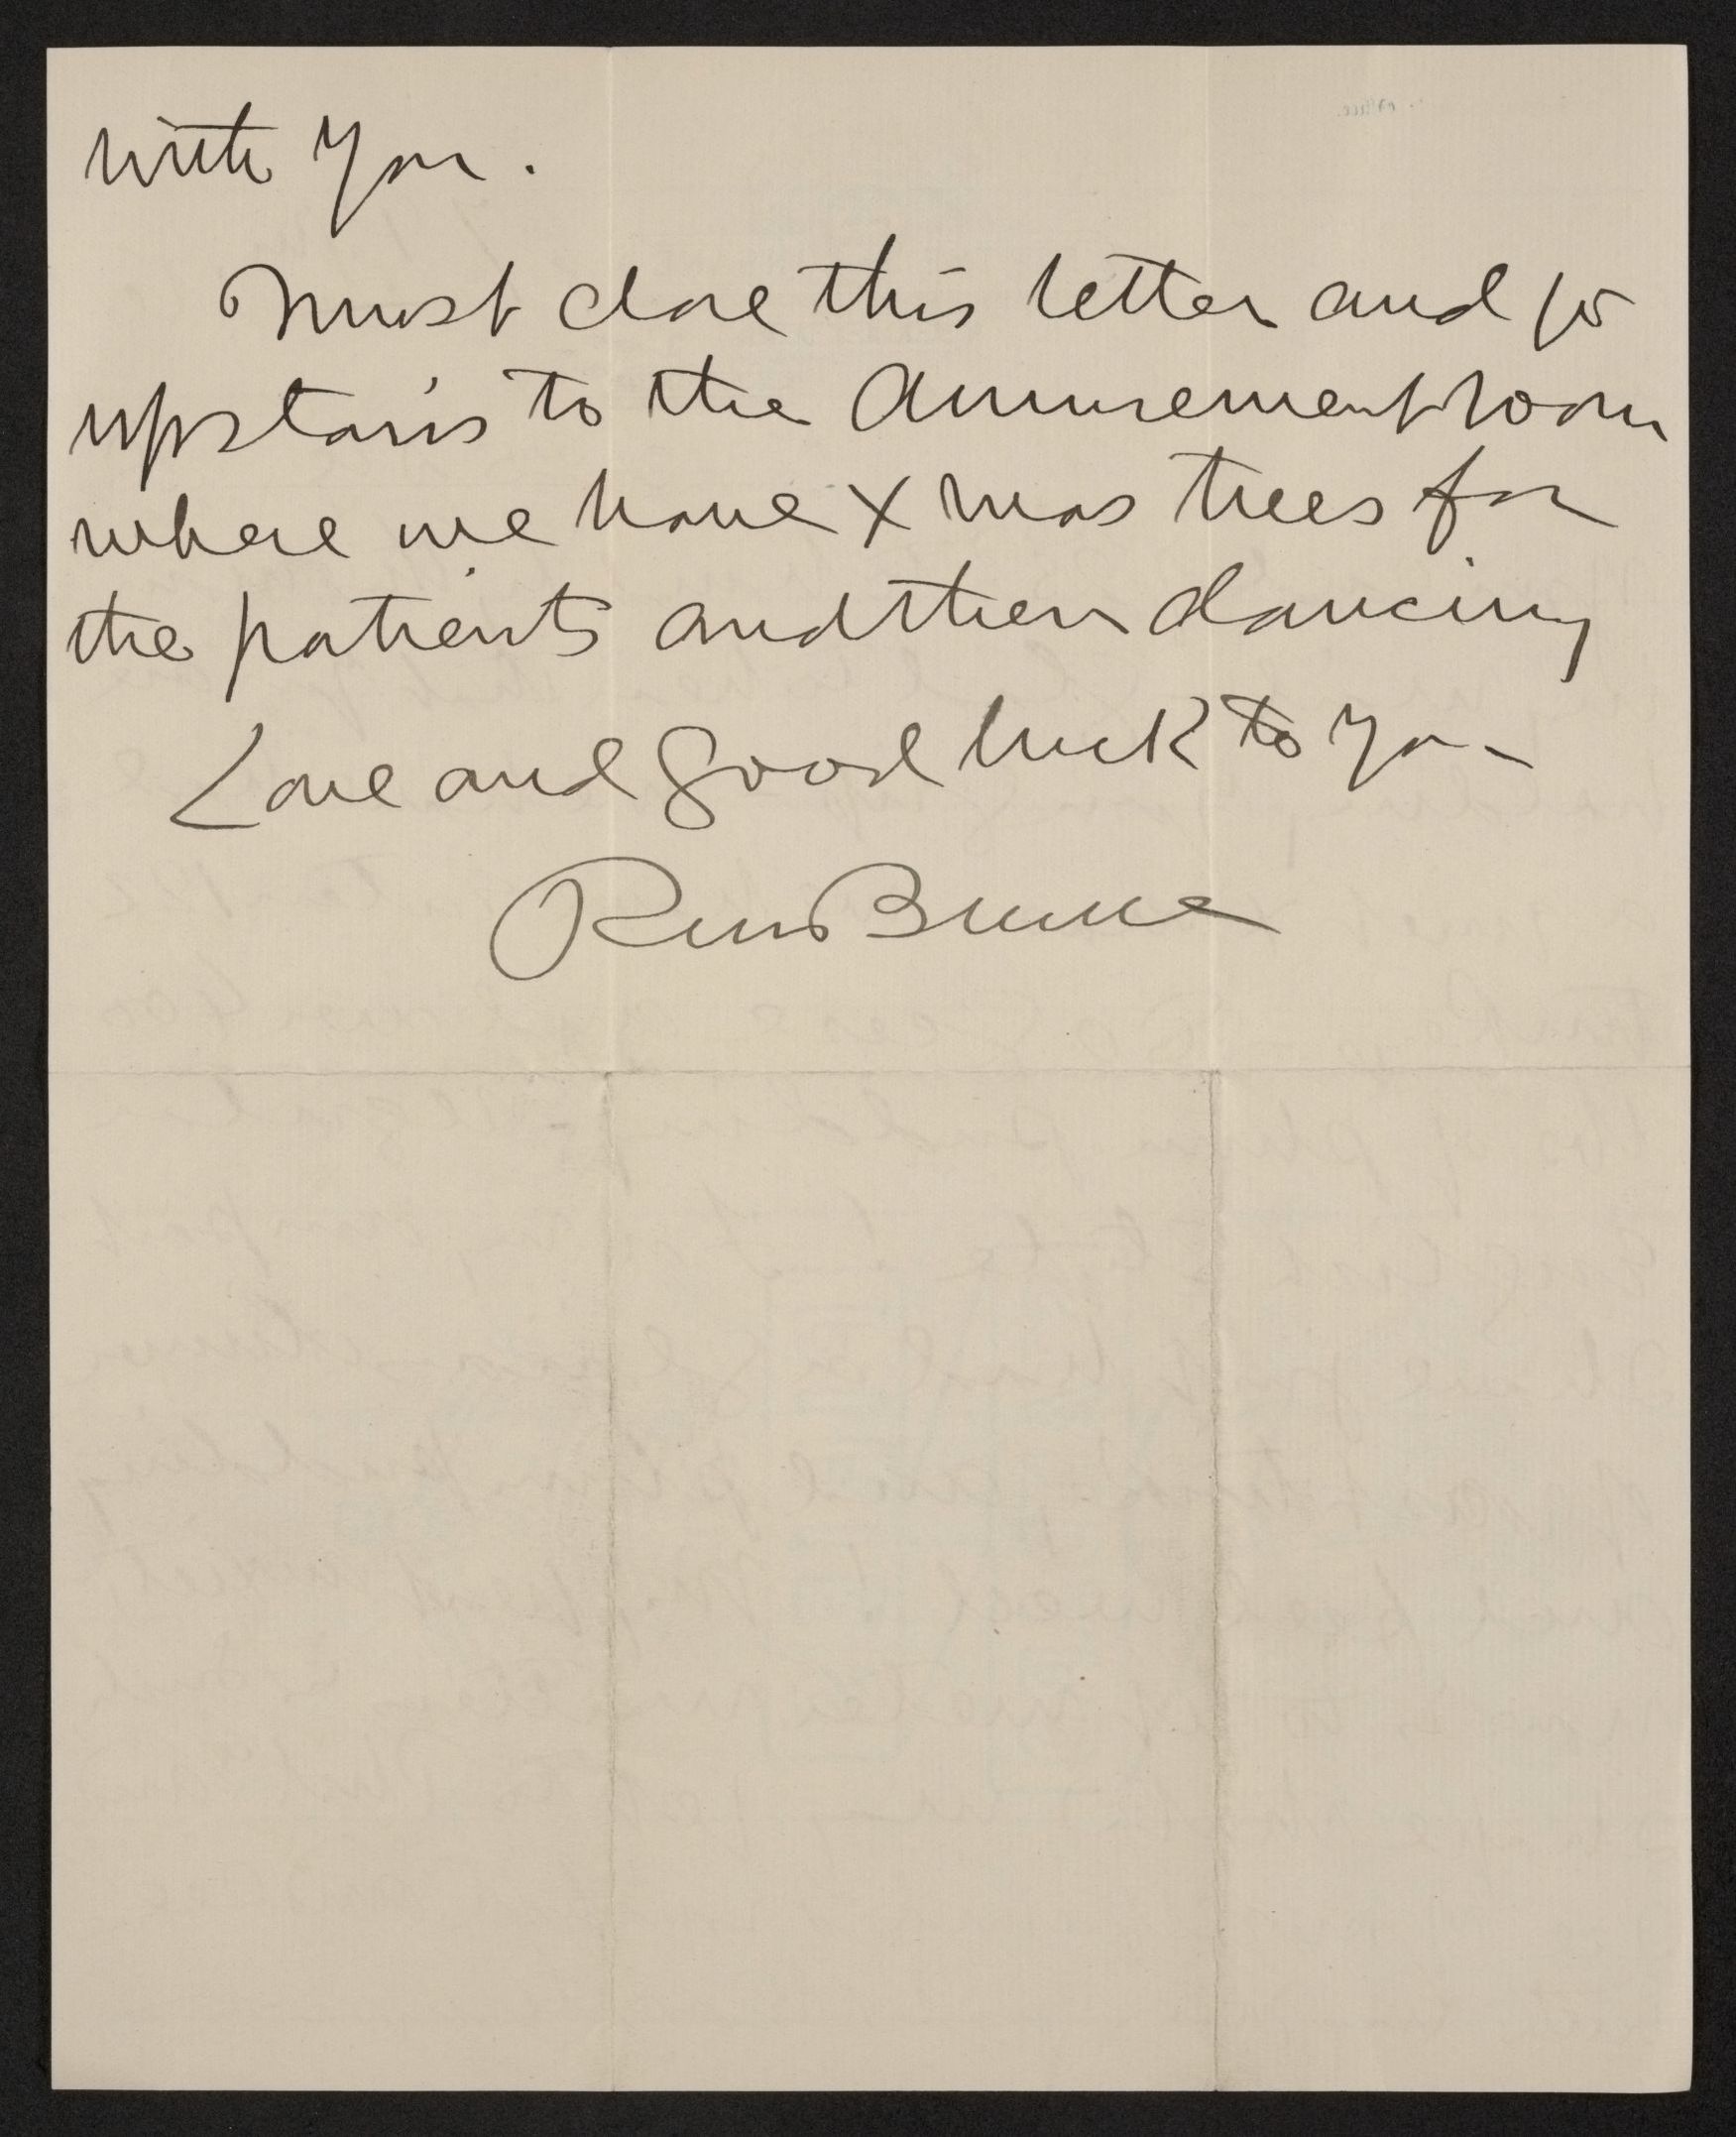 with you.
Must close this letter and go
upstairs to the Amusement room
where we have Xmas trees for
the patients and then dancing
Love and good luck to you